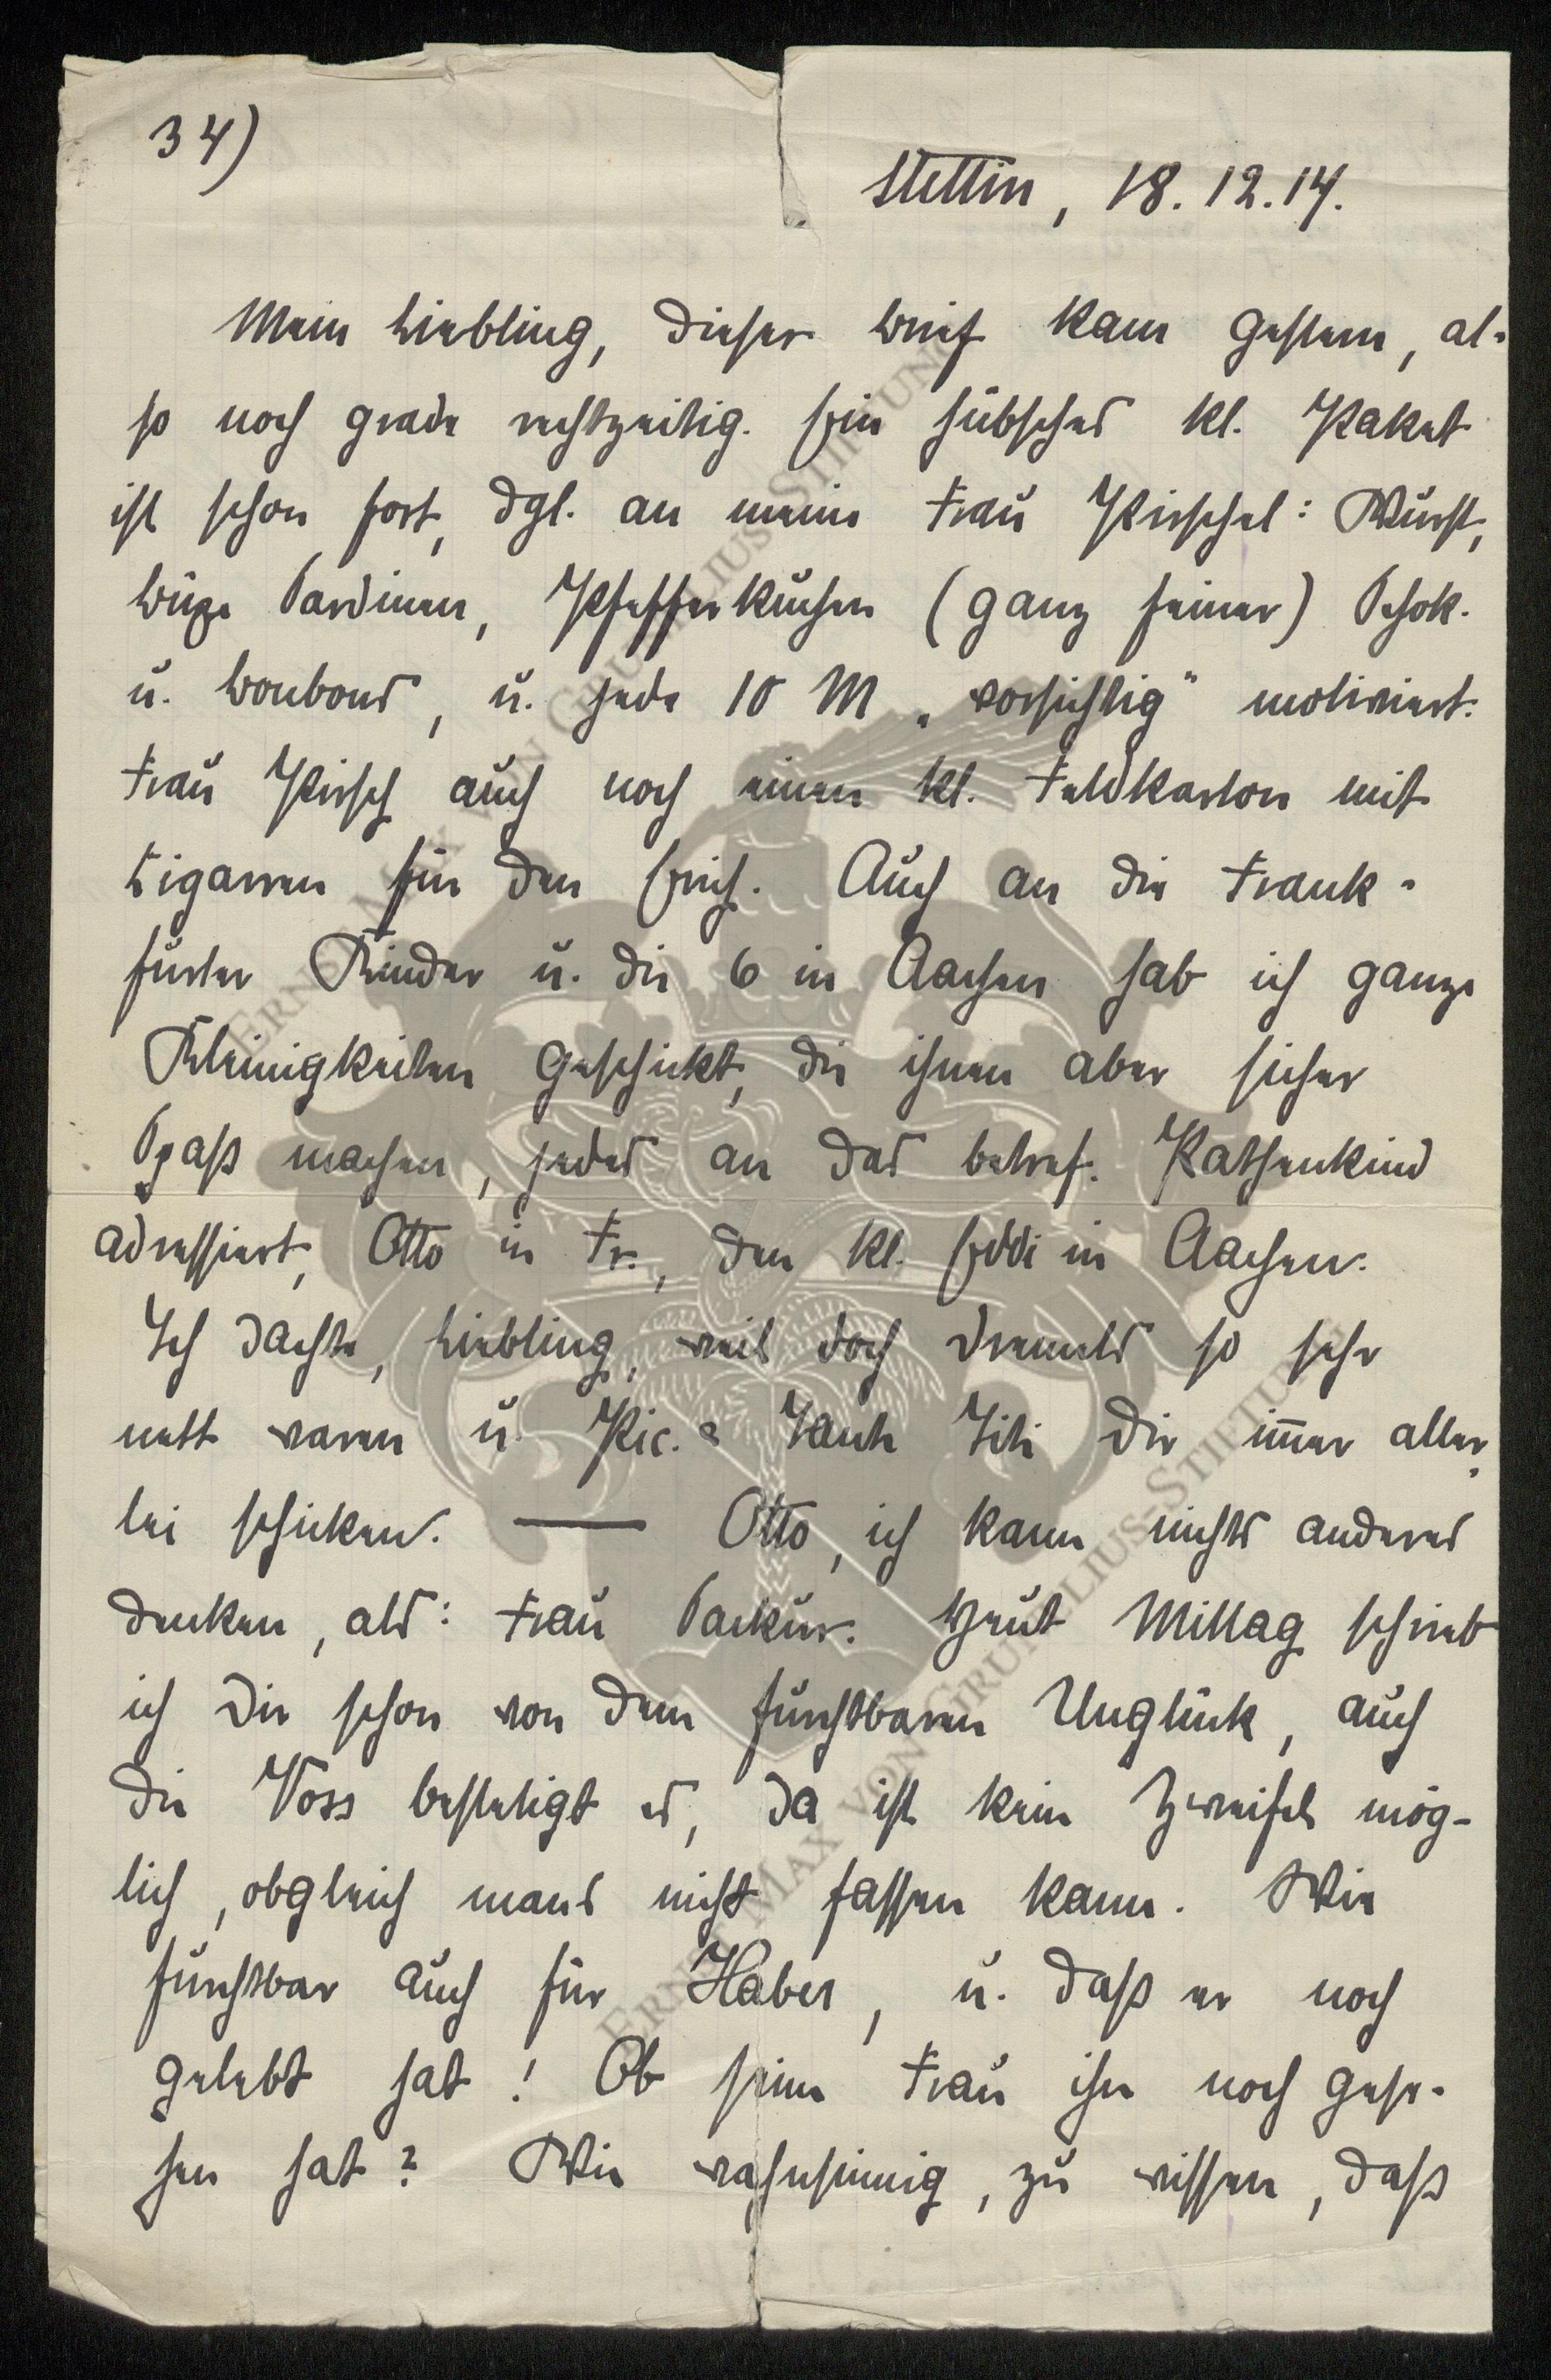 34)
Stettin, 18.12.14.
Mein Liebling, dieser Brief kam gestern, al-
so noch grade rechtzeitig. Ein hübsches kl. Paket
ist schon fort, dgl. an meine Frau Pirschel: Wurst,
Büchse Sardinen, Pfefferkuchen (ganz feiner) Schok.
u. Bonbons, u. jede 10 M „vorsichtig" motiviert.
Frau Pirsch auch noch einen kl. Feldkarton mit
Zigarren für den Erich. Auch an die Frank-
furter Kinder u. die 6 in Aachen hab ich ganze
Kleinigkeiten geschickt, die ihnen aber sicher
Spaß machen, jedes an das betref. Patenkind
adressiert, Otto in Fr., den kl. Eddi in Aachen.
Ich dachte, Liebling, weil doch Dremels so sehr
nett waren u. Pic. & Tante Titi Dir im̅er aller-
lei schicken. — Otto, ich kann nichts anderes
denken, als: Frau Sackur. Heut Mittag schrieb
ich Dir schon von dem furchtbaren Unglück, auch
die Voss bestätigt es, da ist kein Zweifel mög-
lich, obgleich mans nicht fassen kann. Wie
furchtbar auch für Haber, u. daß er noch
gelebt hat! Ob seine Frau ihn noch gese-
hen hat? Wie wahnsinnig, zu wissen, daß
ERNST MAX VON GRUNELIUS-STIFTUNG
ERNST MAX VON GRUNELIUS-STIFTUNG